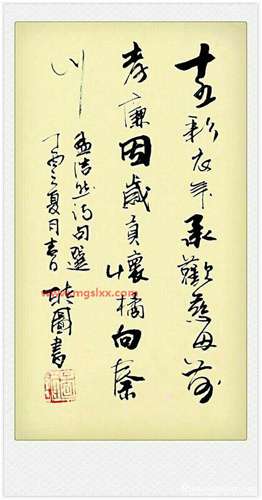 十五彩衣年承歡慈母前
孝廉因歲貢懷橘向秦
川
孟浩然詩句選
丁酉之夏月
圖書
mgslxx.com